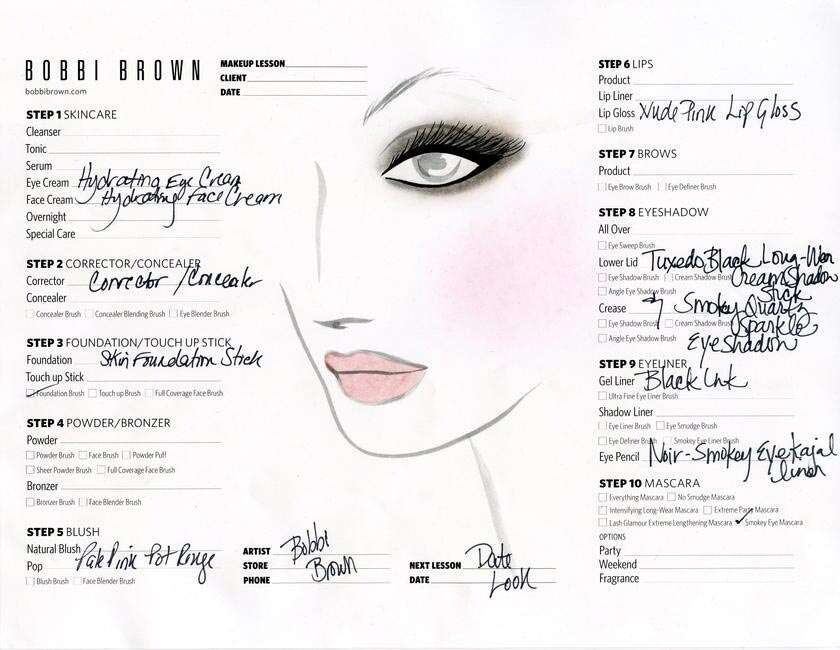 BOBBI BROWN
bobbibrown.com
MAKEUP LESSON
CLIENT
DATE
STEP 1 SKINCARE
Cleanser
Tonic
Serum
Eye Cream Hydrating Eye Cream
Face Cream Hydrating Face Cream
Overnight
Special Care
STEP 2 CORRECTOR/CONCEALER
Corrector Corrector / Concealer
Concealer
Concealer Brush Concealer Blending Brush Eye Blender Brush
STEP 3 FOUNDATION/TOUCH UP STICK
Foundation Skin Foundation Stick
Touch up Stick
Foundation Brush Touch up Brush Full Coverage Face Brush
STEP 4 POWDER/BRONZER
Powder
Powder Brush Face Brush Powder Puff
Sheer Powder Brush Full Coverage Face Brush
Bronzer
Bronzer Brush Face Blender Brush
STEP 5 BLUSH
Natural Blush
Pop Pale Pink Pot Rouge
Blush Brush Face Blender Brush
ARTIST Bobbi
STORE Brown
PHONE
NEXT LESSON Date
DATE Look
STEP 6 LIPS
Product
Lip Liner
Lip Gloss Nude Pink Lip Gloss
Lip Brush
STEP 7 BROWS
Product
Eye Brow Brush Eye Definer Brush
STEP 8 EYESHADOW
All Over
Eye Sweep Brush
Lower Lid Tuxedo Black Long-Wear
Cream Shadow
Stick
Eye Shadow Brush Cream Shadow Brush
Angle Eye Shadow Brush
Crease Smokey Quartz
Sparkle
Eye Shadow
Eye Shadow Brush Cream Shadow Brush
Angle Eye Shadow Brush
STEP 9 EYELINER
Gel Liner Black Ink
Ultra Fine Eye Liner Brush
Shadow Liner
Eye Liner Brush Eye Smudge Brush
Eye Definer Brush Smokey Eye Liner Brush
Eye Pencil Noir-Smokey Eye Kajal
liner
STEP 10 MASCARA
Everything Mascara No Smudge Mascara
Intensifying Long-Wear Mascara Extreme Party Mascara
Lash Glamour Extreme Lengthening Mascara Smokey Eye Mascara
OPTIONS
Party
Weekend
Fragrance